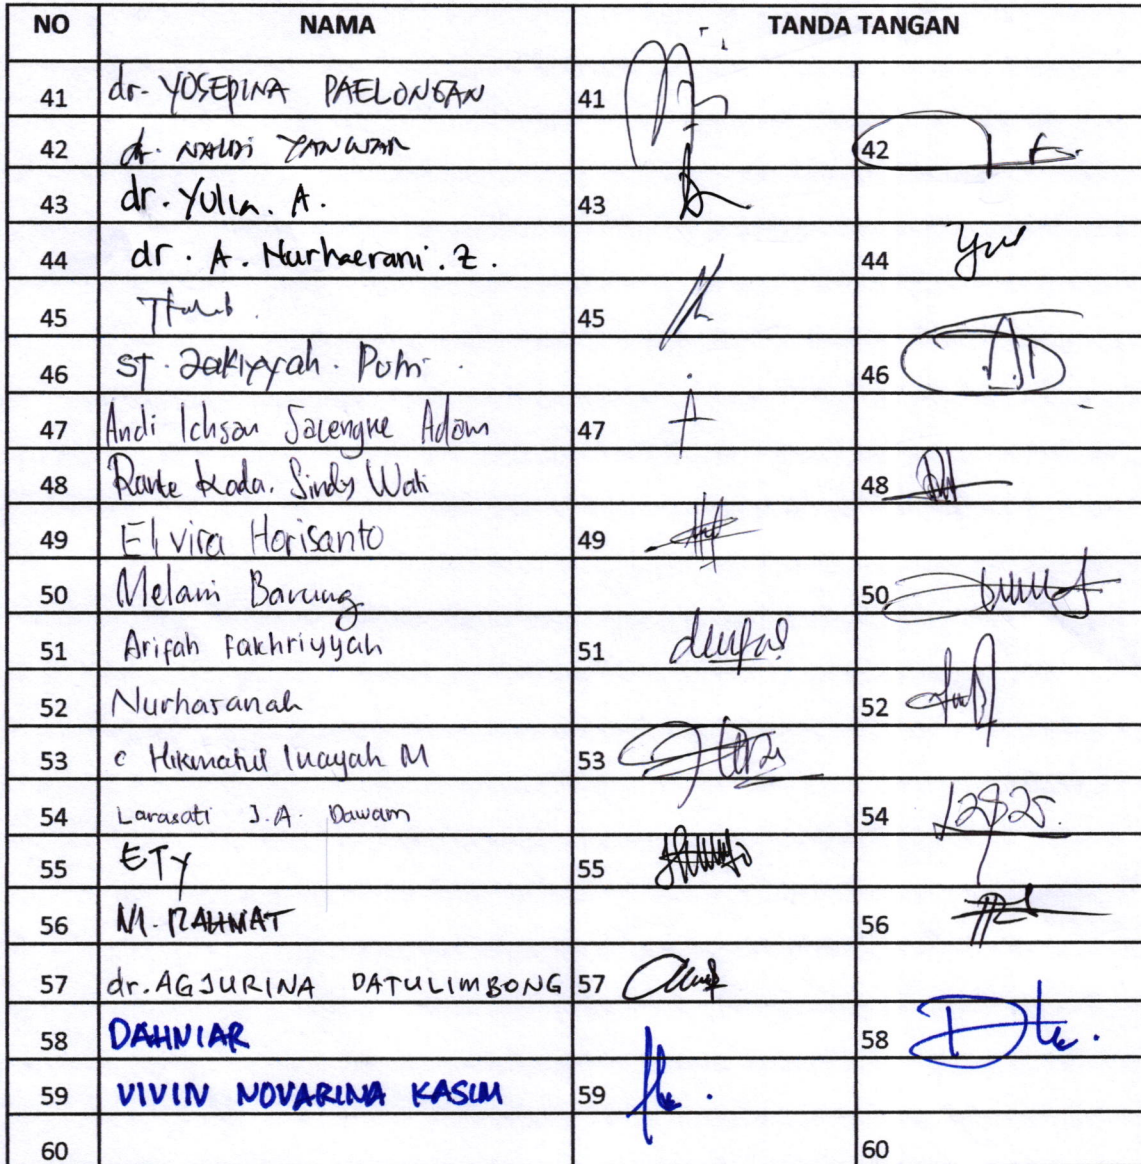 NO NAMA TANDA TANGAN
41 dr. YOSEPINA PAELONGAN 41
42 dr. NALDI YANWAR 42
43 dr. Yulia. A. 43
44 dr. A. Nurhaerani. Z. 44
45 45
46 ST. Zakiyyah. Putri 46
47 Andi Ichsan Salengke Adam 47
48 Rante Kada. Sindy Wati 48
49 Elvira Horisanto 49
50 Melani Barung 50
51 Arifah Fakhriyyah 51
52 Nurhasanah 52
53 Hikmatul Inayah M 53
54 Larasati J.A. Dawam 54
55 ETY 55
56 M. RAHMAT 56
57 dr. AGJURINA DATULIMBONG 57
58 DAHNIAR 58
59 VIVIN NOVARINA KASIM 59
60 60